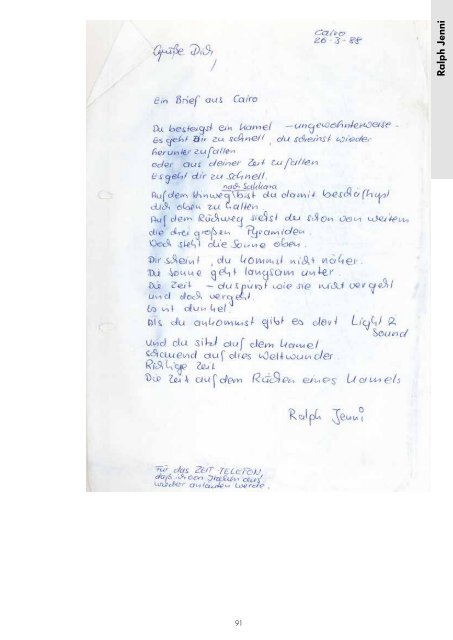 Ralph Jenni
Cairo
26-3-88
Grüße Dich
Ein Brief aus Cairo
Du besteigst ein Kamel - ungewohnterweise -
Es geht dir zu schnell, du scheinst wieder
herunterzufallen
oder aus deiner Zeit zu fallen
Es geht dir zu schnell.
nach Sakkara
Auf dem Hinweg bist du damit beschäftigt
dich oben zu halten.
Auf dem Rückweg siehst du schon von weitem
die drei großen Pyramiden.
Noch steht die Sonne oben.
Dir scheint, du kommst nicht näher.
Die Sonne geht langsam unter.
Die Zeit - du spürst wie sie nicht vergeht
und doch vergeht.
Es ist dunkel
Als du ankommst gibt es dort Light &
Sound
und du sitzt auf dem Kamel
schauend auf dies Weltwunder.
Richtige Zeit
Die Zeit auf dem Rücken eines Kamels
Ralph Jenni
Für das ZEIT TELEFON,
daß ich von Italien aus
wieder anlaufen werde.
91